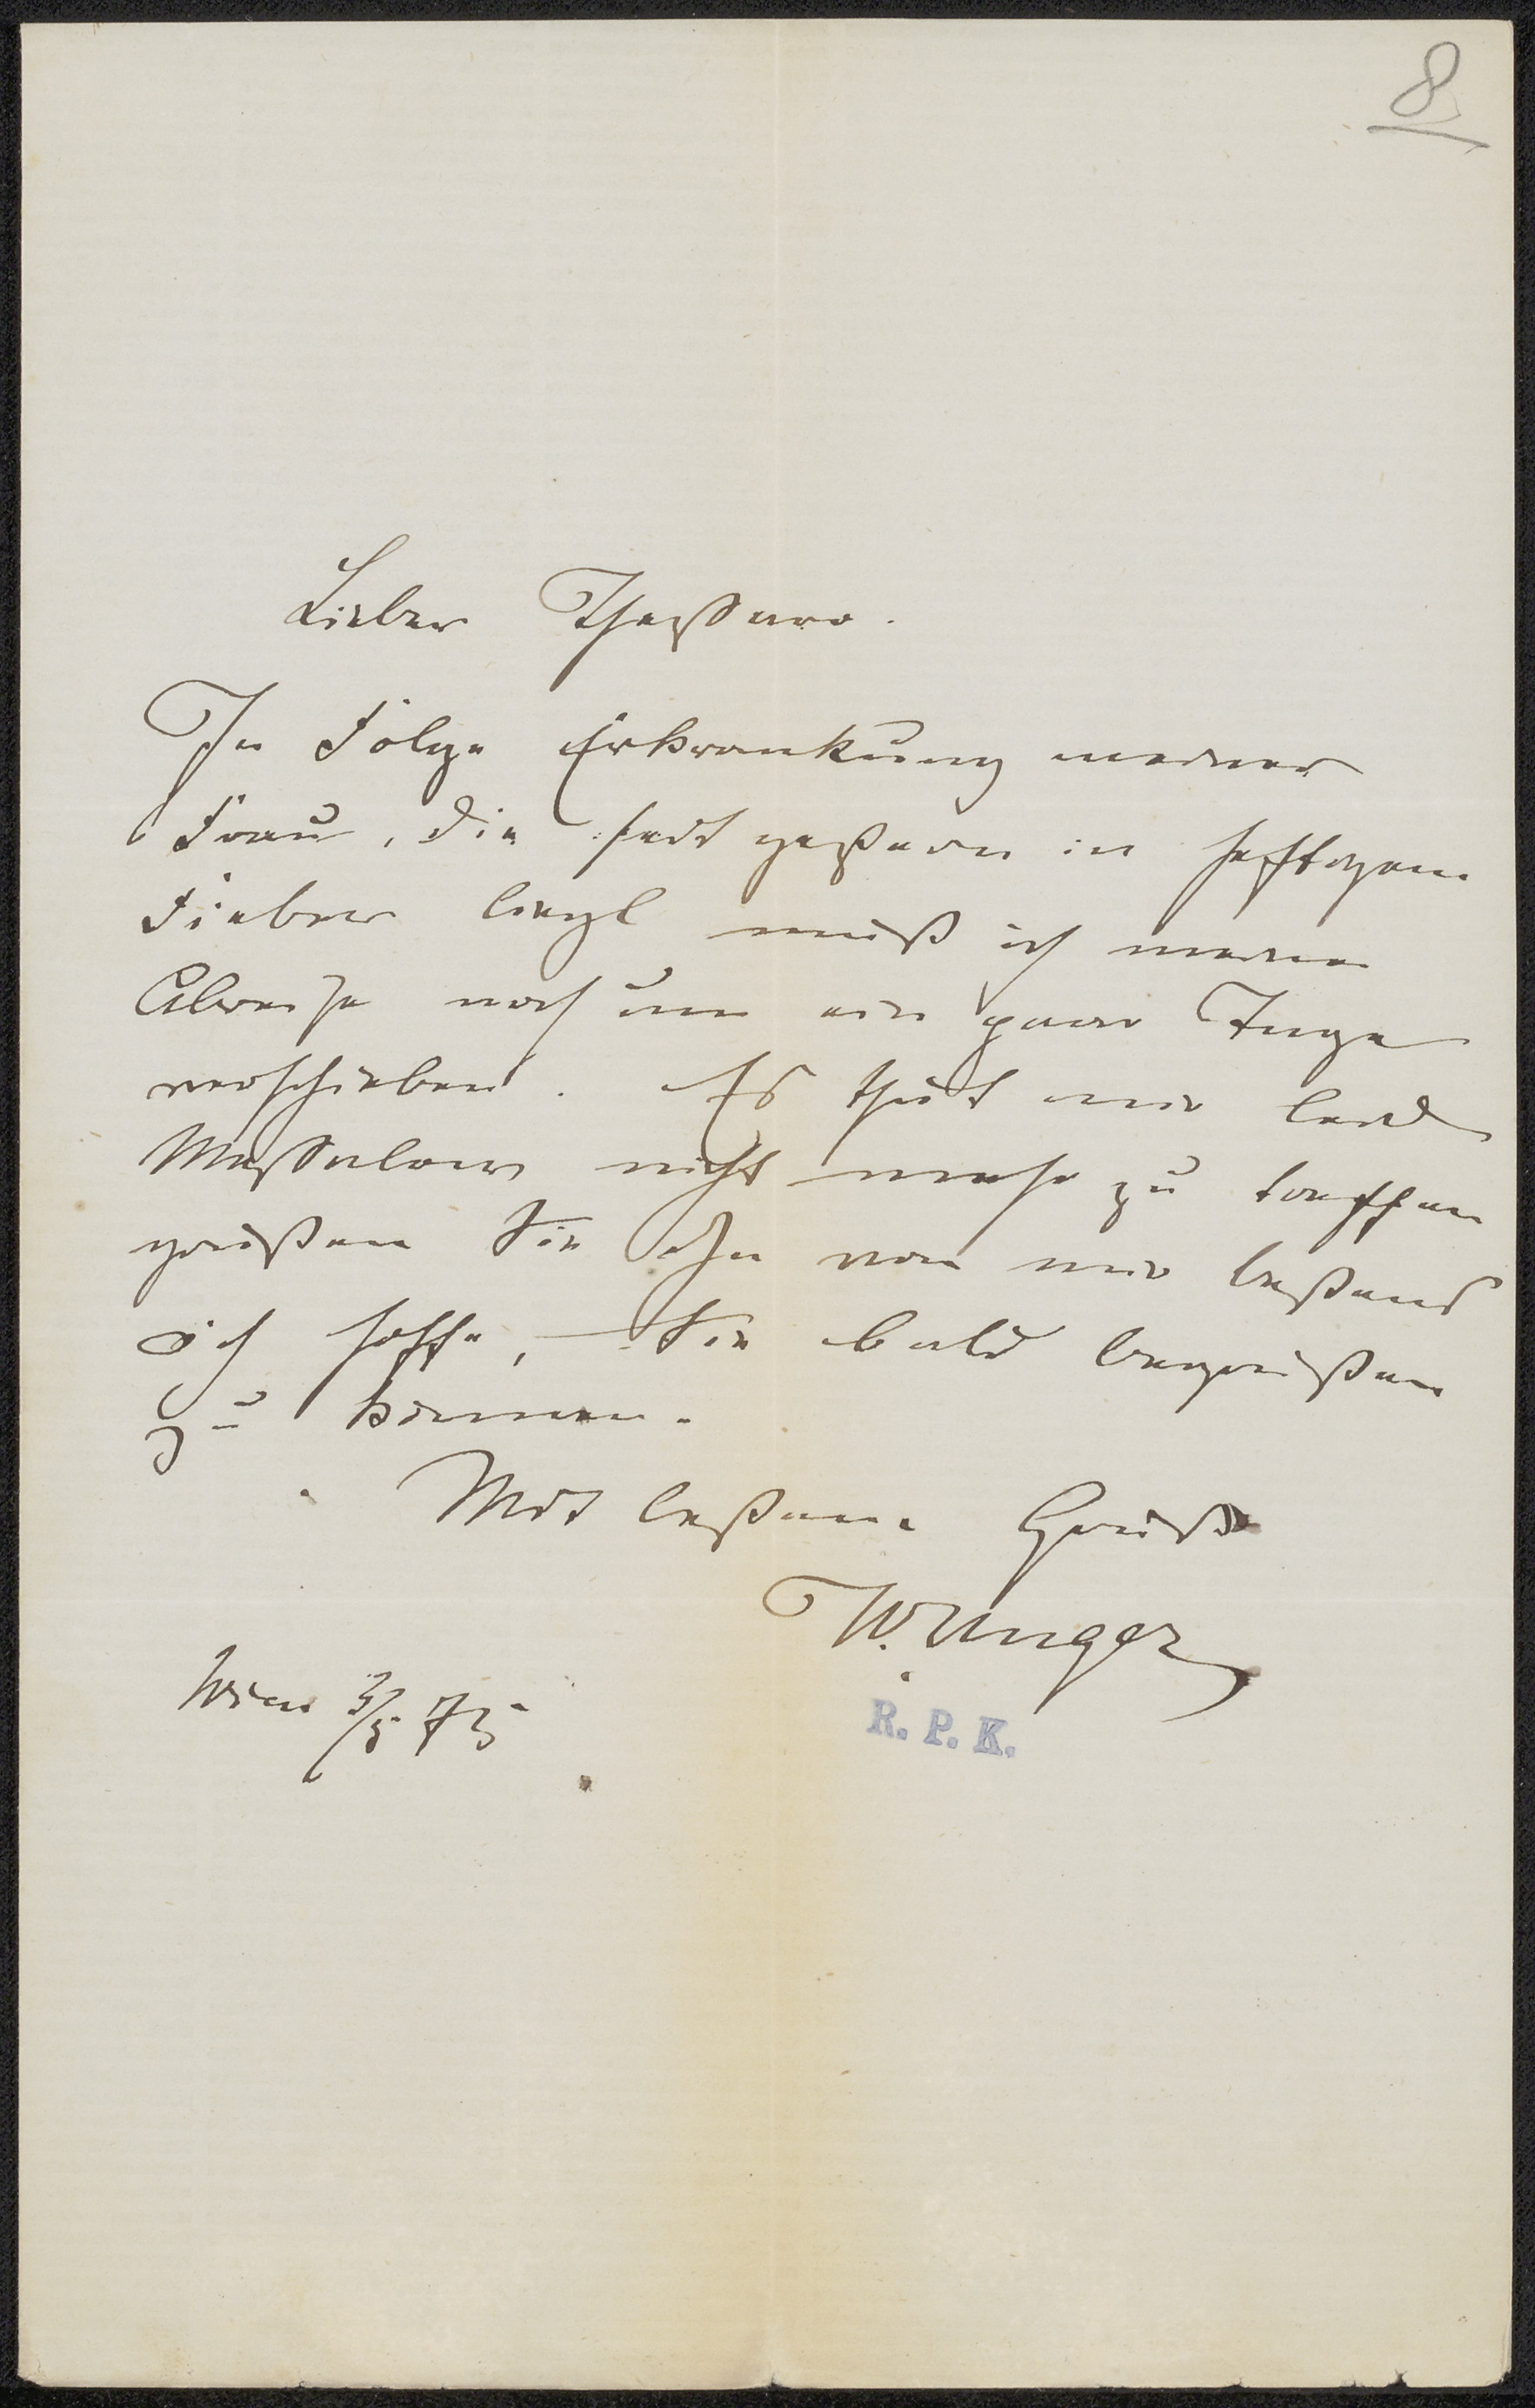 8
Lieber
In Folge Erkrankung meiner
Frau, die seit gestern in heftigem
Fieber liegt muß ich meine
Abreise noch um ein paar Tage
verschieben. Es thut mir leid
Massaloux nicht mehr zu treffen
grüßen Sie ihn von mir bestens
ich hoffe, Sie bald begrüßen
zu können.
Mit bestem Gruß
W. Unger
Wien 3/5 75
R. P. K.